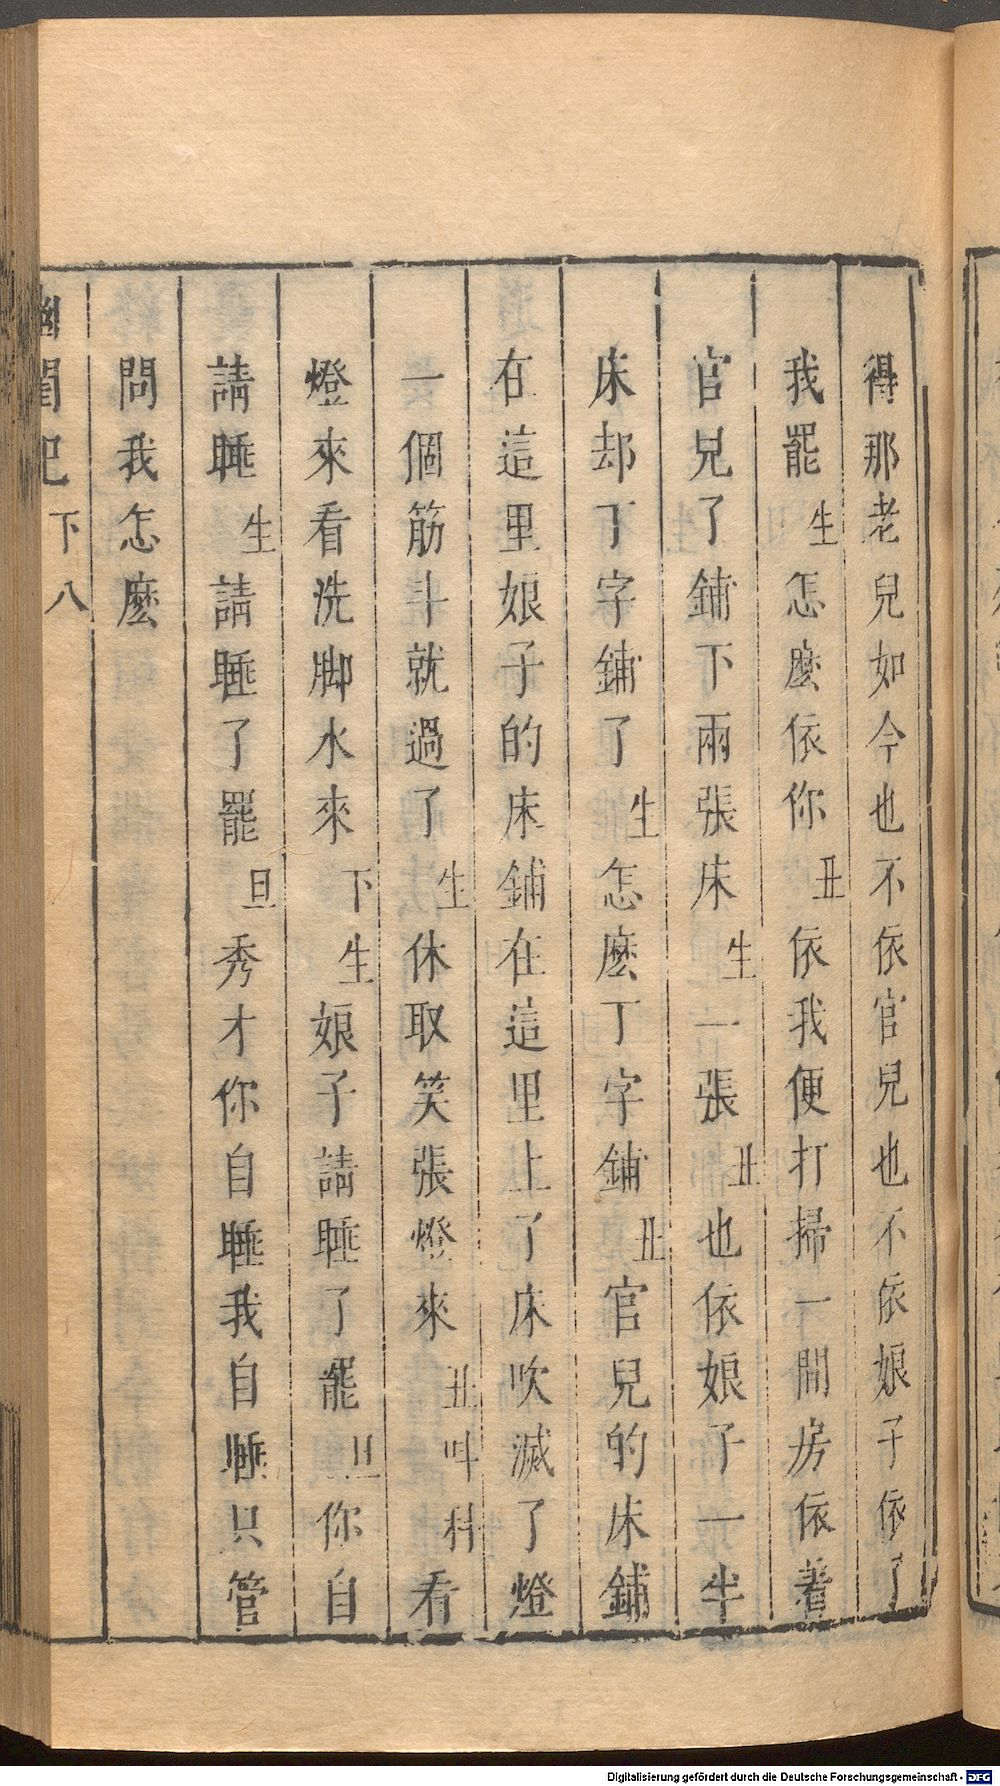 得那老兒如今也不依官兒也不依娘子依了
我罷生怎麽依你丑依我便打掃一間房依着
官兒了鋪下兩張床生一張丑也依娘子一半
床却丁字鋪了生怎麽丁字鋪丑官兒的床鋪
在這里娘子的床鋪在這里上了床吹滅了燈
一個筋斗就過了生休取笑張燈來丑叫科看
燈來看洗脚水來下生娘子請睡了罷旦你自
請睡生請睡了罷旦秀才你自睡我自睡只管
問我怎麽
幽閨記下八
Digitalisierung gefördert durch die Deutsche Forschungsgemeinschaft - DFG